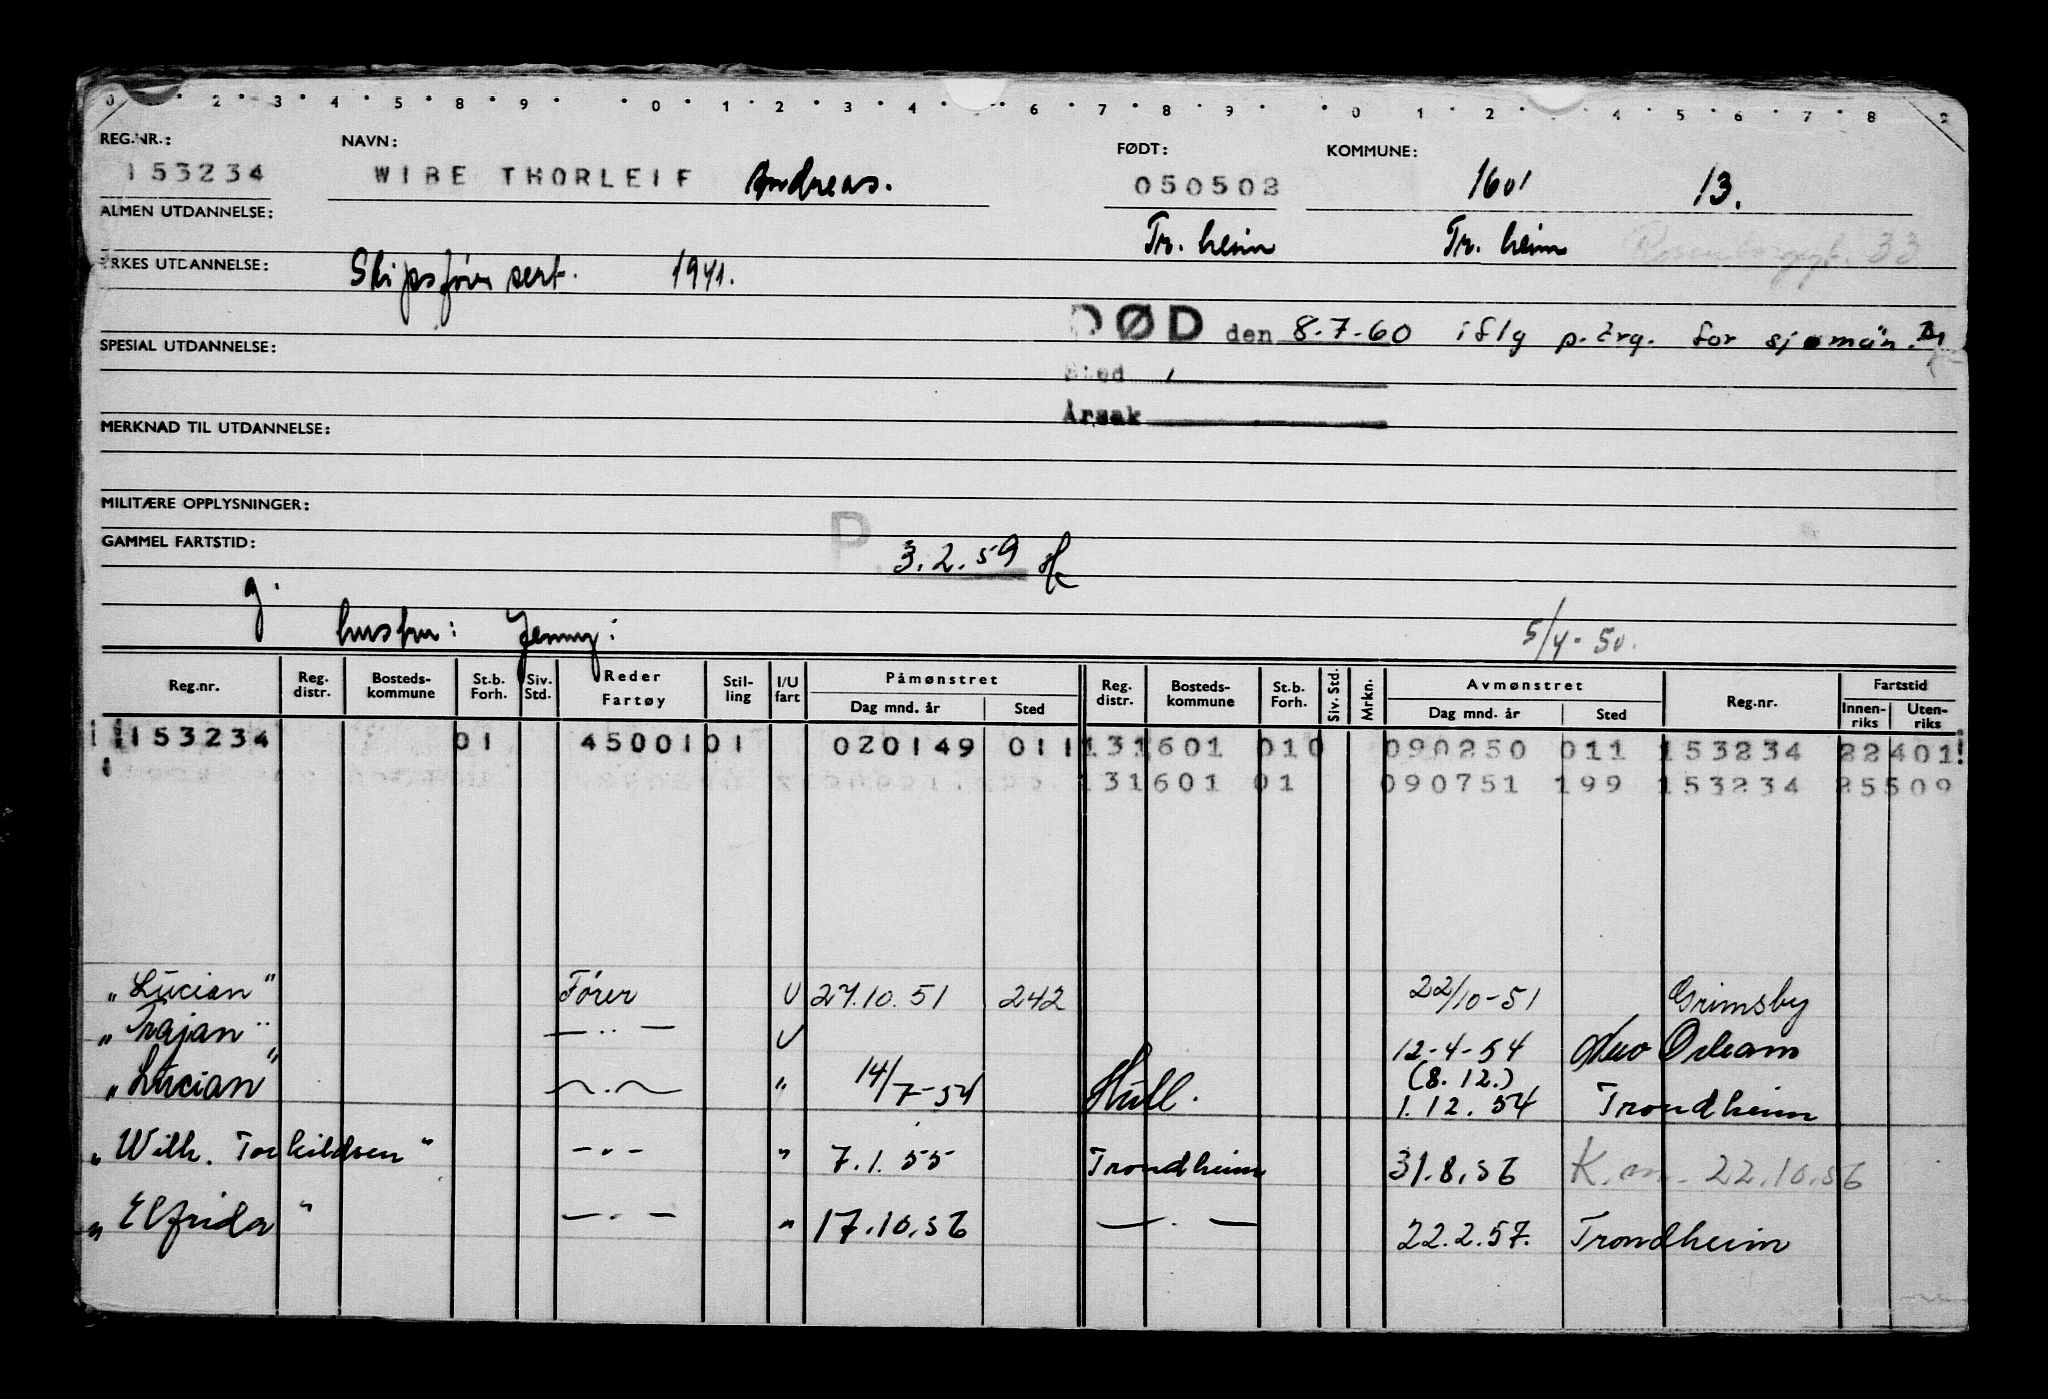 0 2 3 4 5 8 9 0 1 2 3 4 6 7 8 9 0 1 2 4 5 6 7 8 2
REG.NR.: NAVN: FØDT: KOMMUNE:
153234 WIBE THORLEIF Andreas. 050502 1601 13.
ALMEN UTDANNELSE: Tr. heim Tr. heim Rosenborggt. 33
YRKES UTDANNELSE: Skipsfører sert. 1941.
DØD den 8.7.60 iflg p.trg. for sjømän.
SPESIAL UTDANNELSE:
Sted
Årsak
MERKNAD TIL UTDANNELSE:
MILITÆRE OPPLYSNINGER:
GAMMEL FARTSTID: P 3.2.59
g. hustru: Jenny: 5/4-50.
Reg.nr. Reg. distr. Bosteds-kommune St.b. Forh. Siv. Std. Reder Fartøy Stil-ling I/U fart Påmønstret Dag mnd. år Sted Reg. distr. Bosteds-kommune St.b. Forh. Siv. Std. Mrkn. Avmønstret Dag mnd. år Sted Reg.nr. Fartstid Innen-riks Uten-riks
153234 01 4500101 020149 011 131601 010 090250 011 153234 22401
131601 01 090751 199 153234 25509
"Lucian" Fører U 27.10.51 242 22/10-51 Grimsby
"Trajan" — " — U 12-4-54 New Orleans
"Lucian" — . — " 14/7-54 Hull. (8.12.) 1.12.54 Trondheim
"Wilh. Torkildsen" — . — " 7.1.55 Trondheim 31.8.56 K. an. 22.10.56
"Elfrida" — . — " 17.10.56 — . — 22.2.57. Trondheim